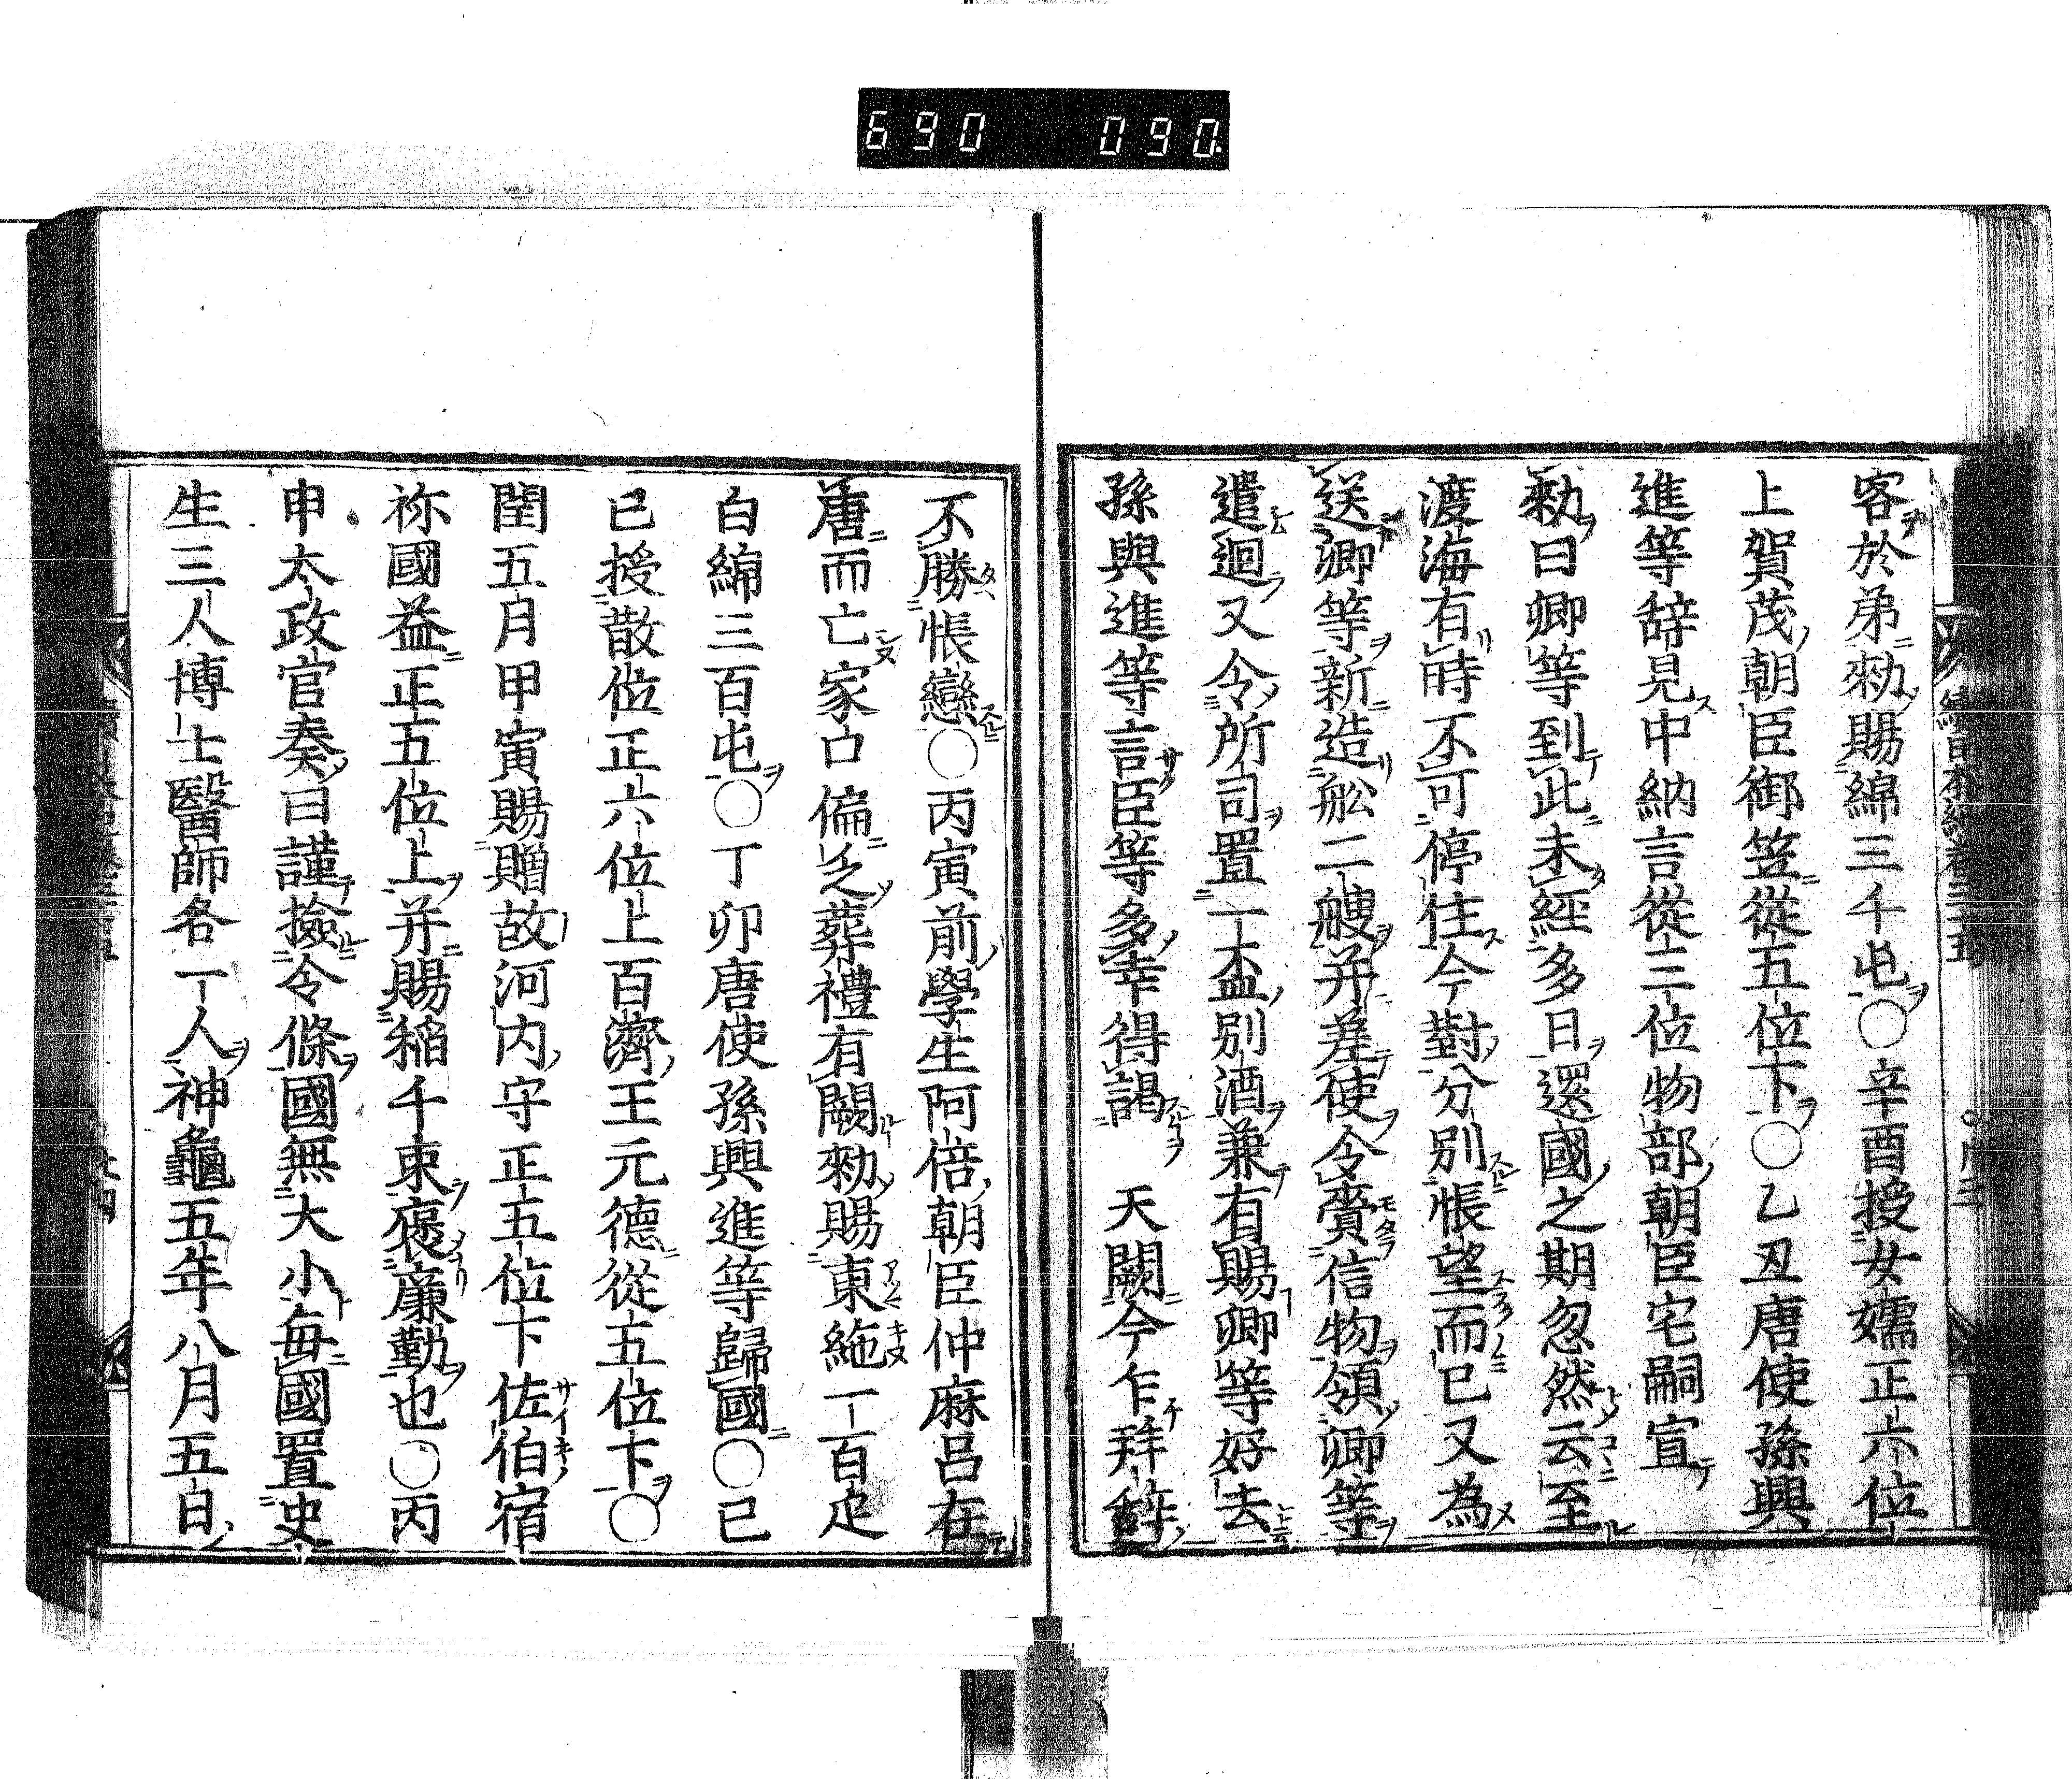 690 090
客於弟勑賜綿三千屯○辛酉授女嬬正六位
上賀茂朝臣御笠從五位下○乙丑唐使孫興
進等辞見中納言從三位物部朝臣宅嗣宣
勑曰卿等到此未經多日還國之期忽然云至
渡海有時不可停住今對分別悵望而已又為
送卿等新造舩二艘并差使令賷信物領卿等
遣迴又令所司置一盃別酒兼有賜卿等好去
孫興進等言臣等多幸得謁 天闕今乍拜辞
不勝悵戀○丙寅前學生阿倍朝臣仲麻呂在
唐而亡家口偏乏葬禮有闕勑賜東絁一百疋
白綿三百屯○丁卯唐使孫興進等歸國○己
巳授散位正六位上百濟王元德從五位下○
閏五月甲寅賜贈故河内守正五位下佐伯宿
祢國益正五位上并賜稲千束褒廉勤也○丙
申太政官奏曰謹撿令條國無大小每國置史
生三人博士醫師各一人神龜五年八月五日